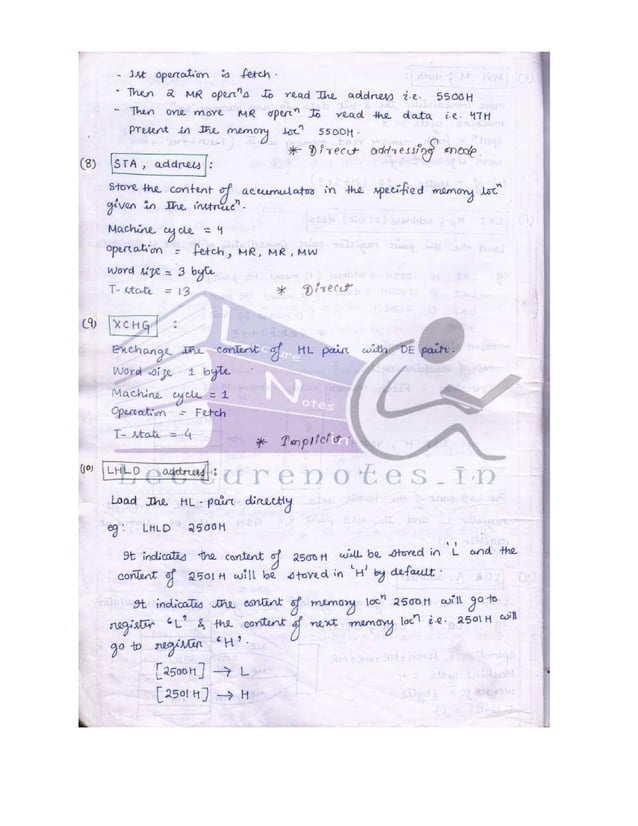 - 1st operation is fetch.
- Then 2 MR opern's to read the address i.e. 5500H
- Then one more MR opern to read the data i.e. 47H
present in the memory locn 5500H.
* Direct addressing mode.
(8) STA, address :
Store the content of accumulator in the specified memory locn
given in the instrucn.
Machine cycle = 4
operation = fetch, MR, MR, MW
Word size = 3 byte
T-state = 13 * Direct
(9) XCHG :
Exchange the content of HL pair with DE pair.
Word size 1 byte
Machine cycle = 1
Operation = Fetch
T-state = 4 * Implicit
Lecture
Notes
Lecturenotes.in
(10) LHLD address :
Load the HL-pair directly
eg: LHLD 2500H
It indicates the content of 2500H will be stored in 'L' and the
content of 2501H will be stored in 'H' by default.
It indicates the content of memory locn 2500H will go to
register 'L' & the content of next memory locn i.e. 2501H will
go to register 'H'.
[2500H] → L
[2501H] → H